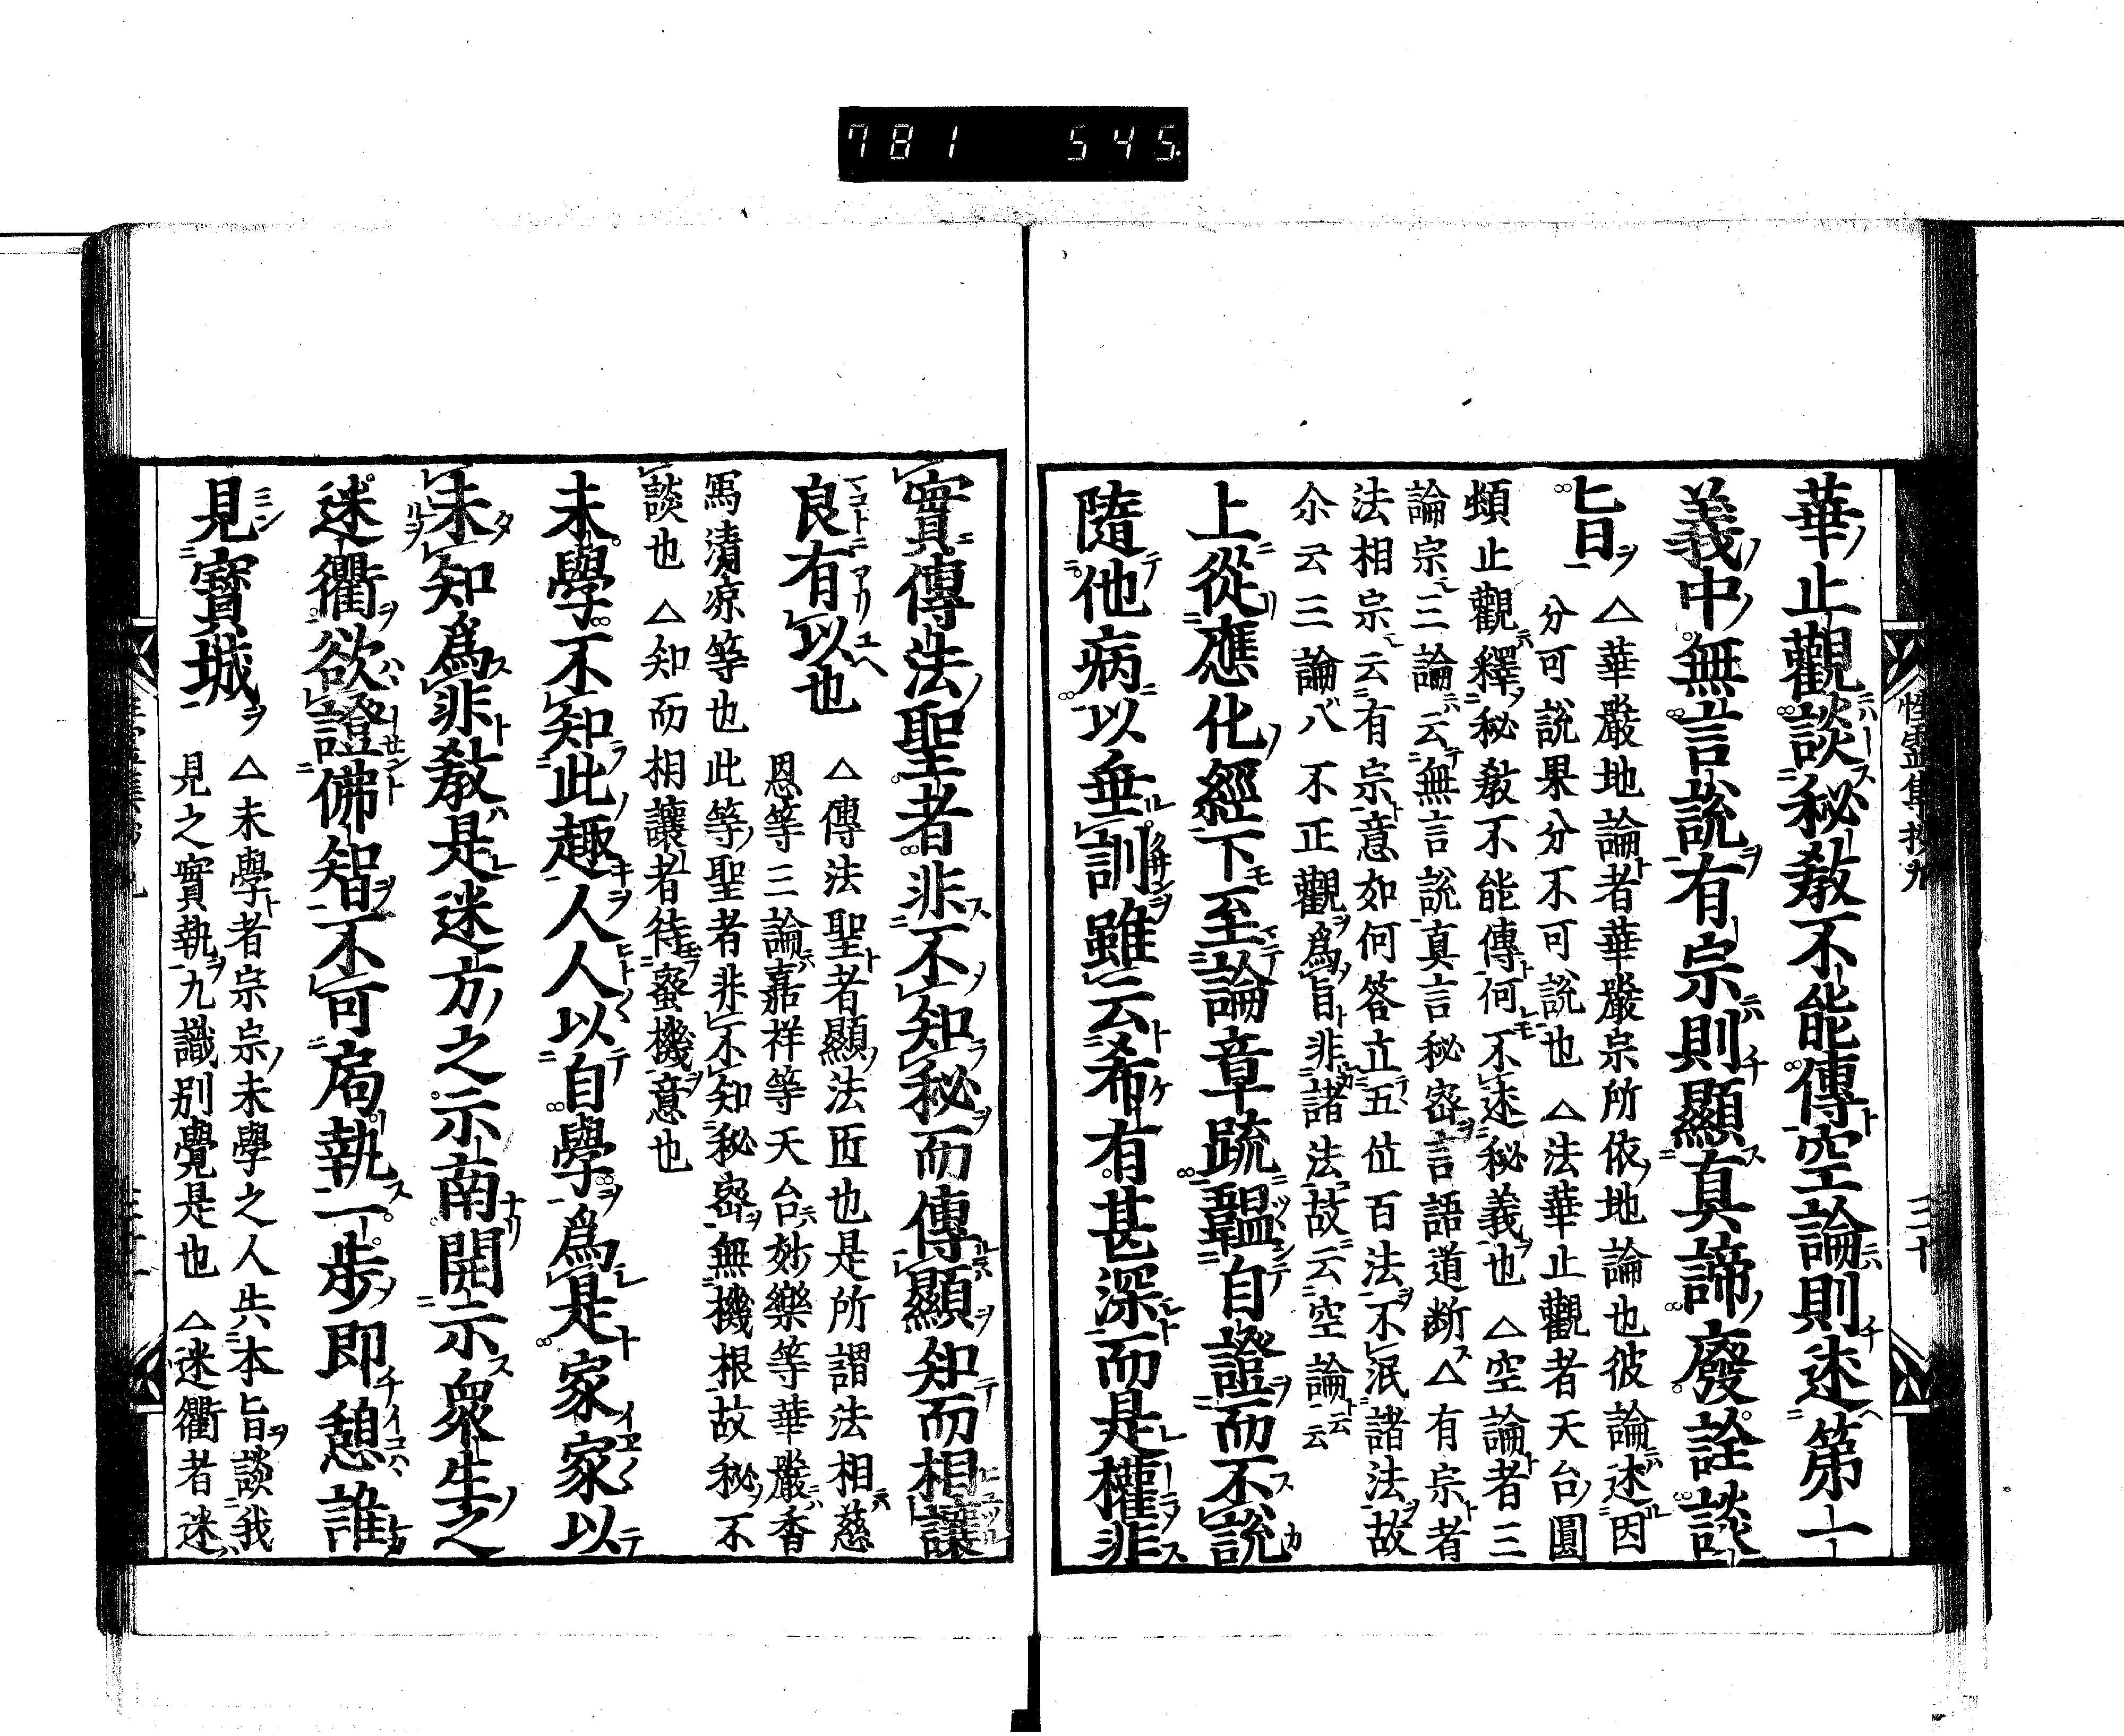 781 545.
華止觀談秘教不能傳空論則迷第一
義中無言說有宗則顯真諦廢詮談
旨
△華嚴地論者華嚴宗所依地論也彼論述因
分可說果分不可說也 △法華止觀者天台圓
頓止觀釋秘教不能傳何不迷秘義也 △空論者三
論宗三論云無言說真言秘密言語道断 △有宗者
法相宗云有宗意如何答立五位百法不泯諸法故
尒云三論八不正觀爲旨非諸法故云空論云云
上從應化經下至論章疏韞自證而不說
隨他病以垂訓雖云希有甚深而是權非
實傳法聖者非不知秘而傳顯知而相讓
良有以也
△傳法聖者顯法匠也是所謂法相慈
恩等三論嘉祥等天台妙樂等華嚴香
馬清凉等也此等聖者非不知秘密無機根故秘不
談也 △知而相讓者待蜜機意也
未學不知此趣人人以自學爲是家家以
未知爲非教是迷方之示南開示衆生之
迷衢欲證佛智不可局執一步即憩誰
見寶城
△未學者宗宗未學之人失本旨談我
見之實執九識別覺是也 △迷衢者迷